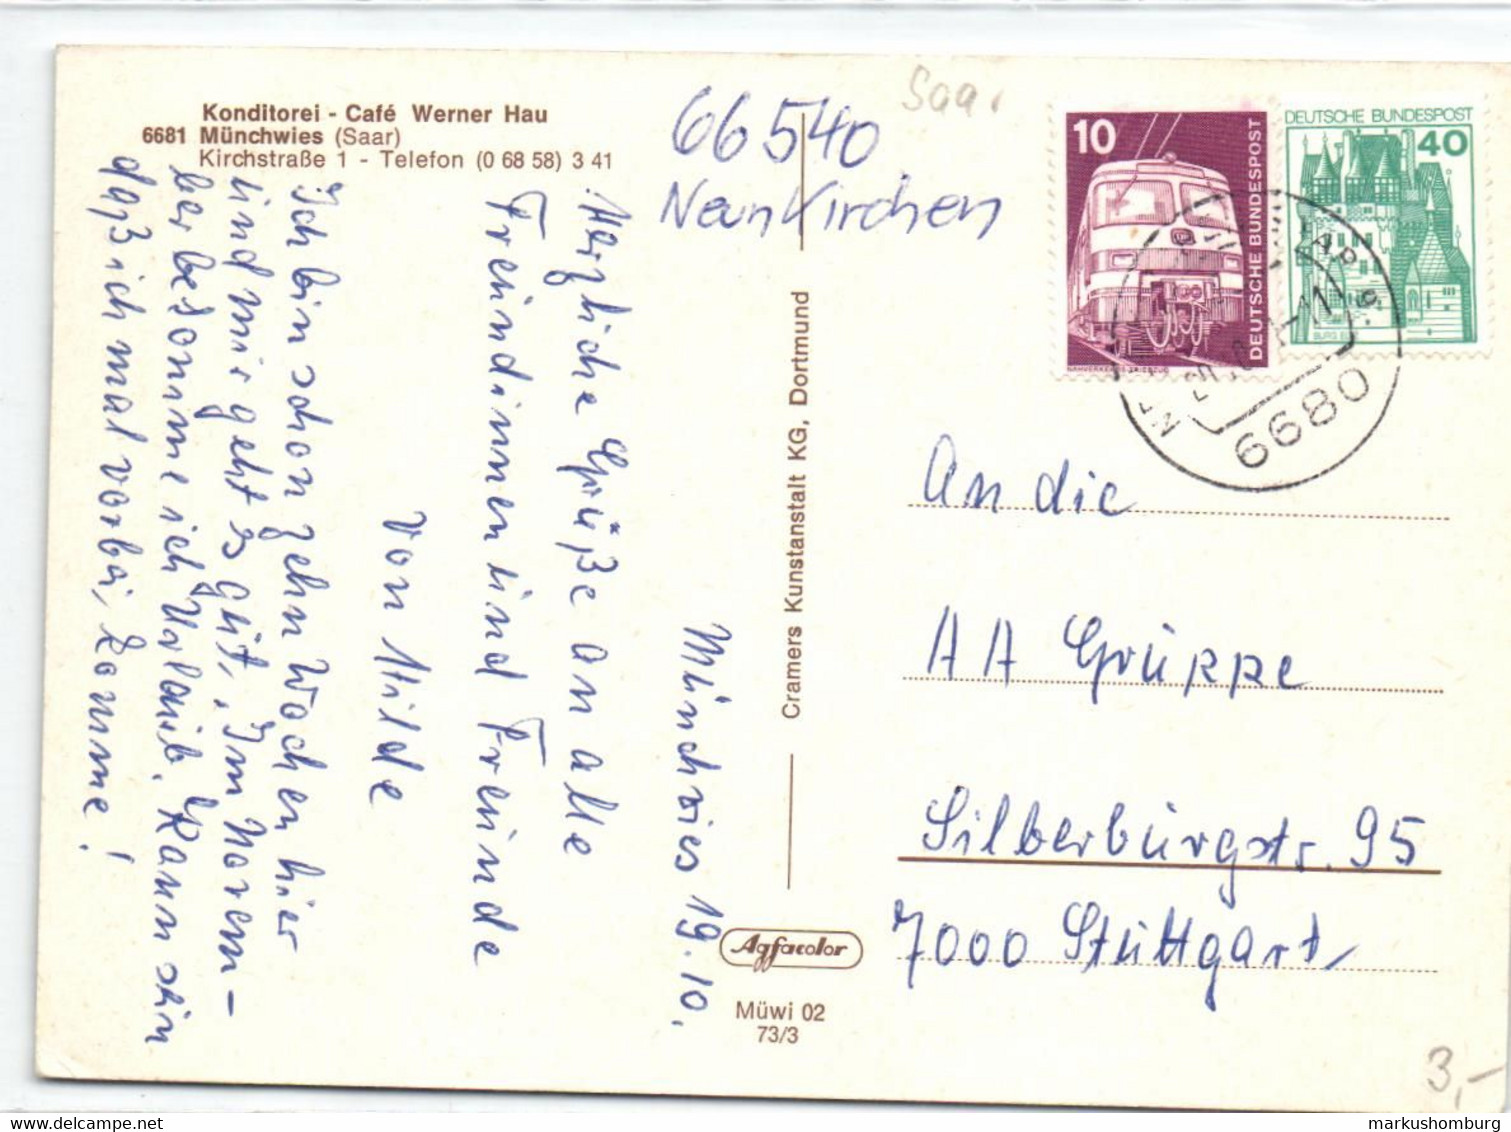 Konditorei - Café Werner Hau
6681 Münchwies (Saar)
Kirchstraße 1 - Telefon (0 68 58) 3 41
66540
Neunkirchen
Saar
10
DEUTSCHE BUNDESPOST
DEUTSCHE BUNDESPOST
40
6680
Münchwies 19.10.
Herzliche Grüße an alle
Freundinnen und Freunde
von Hilde
Ich bin schon zehn Wochen hier
und mir geht es gut. Im Novem-
ber bekomme ich Urlaub. Kann sein
daß ich mal vorbei komme!
Cramers Kunstanstalt KG, Dortmund
Agfacolor
Müwi 02
73/3
An die
AA Gruppe
Silberburgstr. 95
7000 Stuttgart
3,-
markushomburg